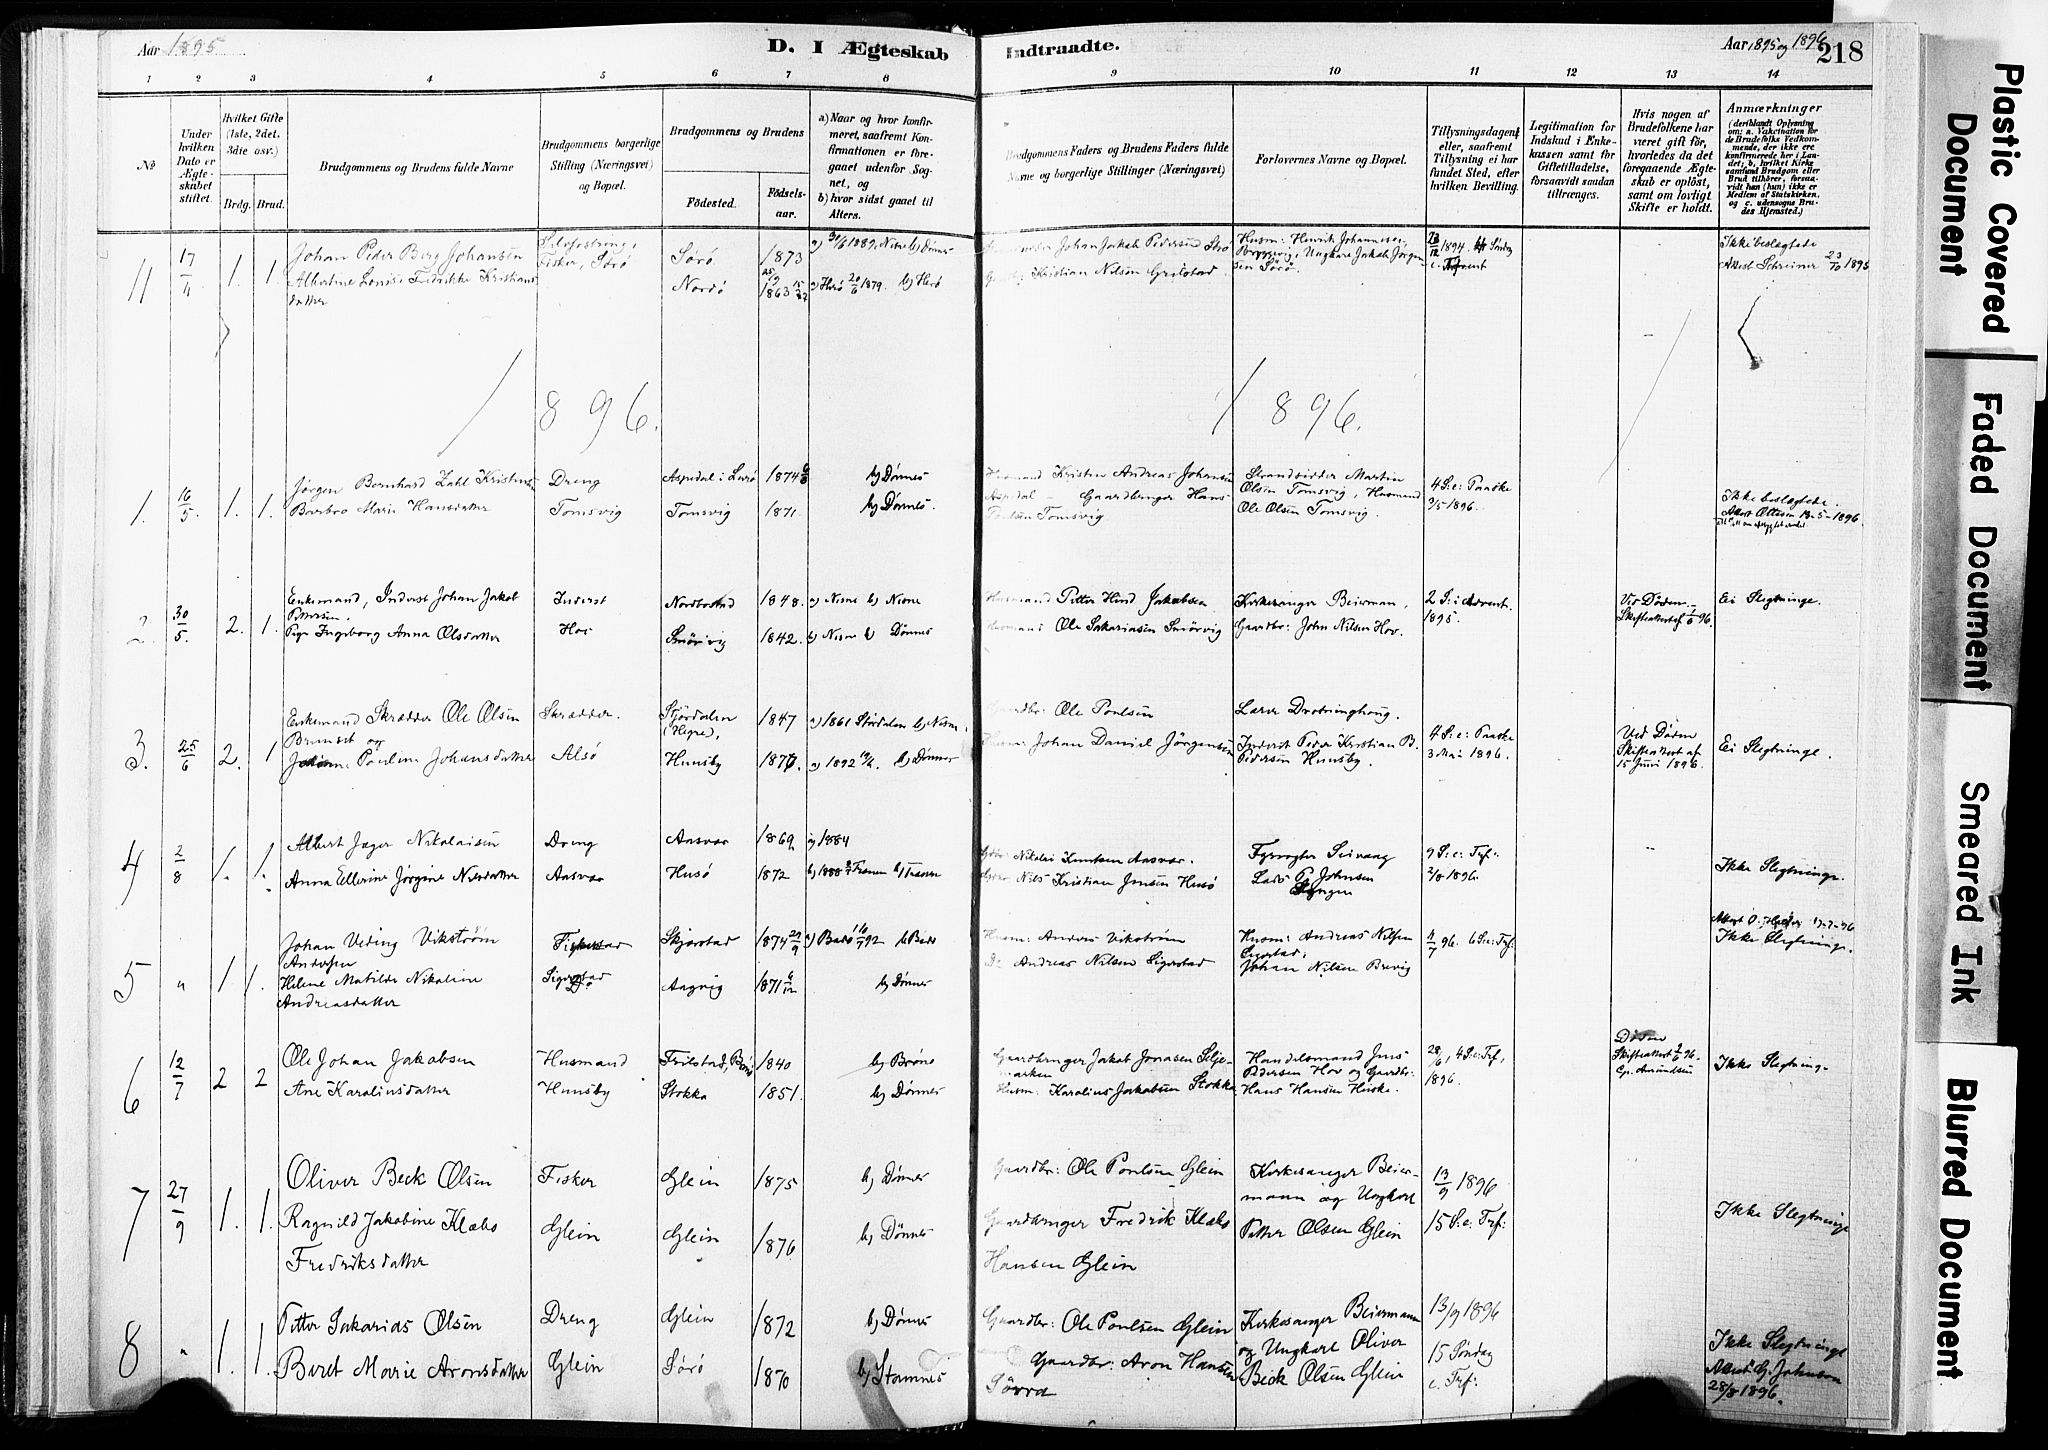 Aar 1895
D. I Ægteskab
Indtraadte.
Aar 1895 og 1896
218
1 2 3 4 5 6 7 8 9 10 11 12 13 14
№
Under hvilken Dato er Ægteskabet stiftet.
Hvilket Gifte (1ste, 2det, 3die osv.)
Brdg. Brud.
Brudgommens og Brudens fulde Navne
Brudgommens borgerlige Stilling (Næringsvei) og Bopæl.
Brudgommens og Brudens
Fødested.
Fødselsaar.
a) Naar og hvor konfirmeret, saafremt Konfirmationen er foregaaet udenfor Sognet, og
b) hvor sidst gaaet til Alters.
Brudgommens Faders og Brudens Faders fulde Navne og borgerlige Stillinger (Næringsvei)
Forlovernes Navne og Bopæl.
Tillysningsdagen, eller, saafremt Tillysning ei har fundet Sted, efter hvilken Bevilling.
Legitimation for Indskud i Enkekassen samt for Giftetilladelse, forsaavidt saadan tiltrænges.
Hvis nogen af Brudefolkene har været gift før, hvorledes da det foregaaende Ægteskab er opløst, samt om lovligt Skifte er holdt.
Anmærkninger
(deriblandt Oplysning om: a. Vakcination for de Brudefolks Vedkommende, der ikke ere konfirmerede her i Landet; b, hvilket Kirkesamfund Brudgom eller Brud tilhører, forsaavidt han (hun) ikke er Medlem af Statskirken, og c. udensogns Brudes Hjemsted.)
11 17/4 1. 1. Johan Peder Berg Johansen
Fisker, Sörö Sörö 1873 b) Dönnes
Johan Jakob Pedersen Sörö
Husm: Henrik Johannesen
Ungkarl Jakob Jörgensen Sörö.
1894. Söndag e. Advent
Ikke beslægtede
Attest Schreiner 23/10 1895
Albertine Lovise Fredrikke Kristiansdatter Nordö 1863 a) Herö 20/6 1879. b) Herö
Kristian Nilsen
1896.
1896.
1. 16/5. 1. 1. Jörgen Bernhard Zahl Kristensen Dreng Aspedal i Lurö 1874 b) Dönnes
Husmand Kristen Andreas Johansen Aspdal - Gaardbruger Hans Poulsen Tomsvig
Strandsidder Martin Olsen Tomsvig, Husmand Ole Olsen Tomsvig.
4 S: e: Paaske 3/5 1896.
Barbro Marie Hansdatter Tomsvig Tomsvig 1871. b) Dönnes.
Ikke beslægtede.
Attest Ottesen 13-5-1896.
2. 30/5. 2. 1. Enkemand, Inderst Johan Jakob Pettersen. Inderst 1848. a) Nesne b) Nesne
Husmand Petter Hind Jakobsen
Kirkesanger Beierman,
2 S: i Advent. 1895.
Ved Döden. Skifteattest af 96.
Ei Slegtninge.
Pige Ingeborg Anna Olsdatter Hov Smörvig 1842. a) Nesne b) Dönnes
Husmand Ole Sakariasen Smörvig
Gaardbr: John Nilsen Hov.
3. 25/6 2. 1 Enkemand Skrædder Ole Olsen og Skrædder. Stjördalen (Hegre), 1847 a) 1861 Stördalen b) Nesne
Gaardbr: Ole Poulsen
4 S: e: Paaske 3 Mai 1896.
Ved Döden Skifteattest af 15 Juni 1896.
Ei Slegtninge.
Pauline Johansdatter Alsö Hunsby a) 1892 b) Dönnes
Johan Daniel Jörgensen
Inderst Peder Kristian B. Pedersen Hunsby.
4 2/8 1. 1. Albert Jæger Nikolaisen Dreng Aasvær 1869 a) 1884
Nikolai Knutsen Aasvær.
9 S: e: Tref: 2/8 1896.
Ikke Slegtninge.
Anna Ellerine Jörgine Nilsdatter Aasvær Husö 1872 b) Trænen
Nils Kristian Jensen Husö
5 " 1 1. Johan Veding Vikström Andersen Skjerstad 1874 b) Bodö
Husm: Anders Vikström
Husm: Andreas Nilsen Sigerstad,
Johan Nilsen Brevig
96. 6 S: e: Tref:
Ikke Slegtninge.
Helene Matilde Nikoline Andreasdatter Aagvig 1871 b) Dönnes
Do Andreas Nilsen Sigerstad
6 12/7 2 2 Ole Johan Jakobsen Husmand 1840 b) Brönö
Gaardbruger Jakob Jonasen
Handelsmand Jens Pedersen Hov og Gaardbr: Hans Hansen Huske.
28/6, 4 S: e: Tref, 1896.
Döden Skifteattest 96- Amundsen
Ikke Slegtning-
Ane Karoliusdatter Hunsby Stokka 1851. b) Dönnes
Husm: Karolius Jakobsen Stokka
7 27/9 1. 1. Oliver Beck Olsen Fisker Glein 1875 b) Dönnes
Gaardbr: Ole Poulsen Glein
Kirkesanger Beiermann og Ungkarl Petter Olsen Glein
13/9 1896
15 S: e: Tref:
Ikke Slegtninge
Ragnild Jakobine Klæbo Fredriksdatter Glein Glein 1876 b) Dönnes
Gaardbruger Fredrik Klæbo Hansen Glein
8 " 1. 1. Petter Sakarias Olsen Dreng Glein 1872 b) Dönnes
Gaardbr: Ole Poulsen Glein
Kirkesanger Beiermann og Ungkarl Oliver Beck Olsen Glein
13/9 1896
15 Söndag e. Tref:
Ikke Slegtninge
Attest G. Johnson 28/8 1896.
Beret Marie Aronsdatter Glein Sörö 1870 b) Stamnes
Gaardbr: Aron Hansen Sörra
Plastic Covered Document
Faded Document
Smeared Ink
Blurred Document